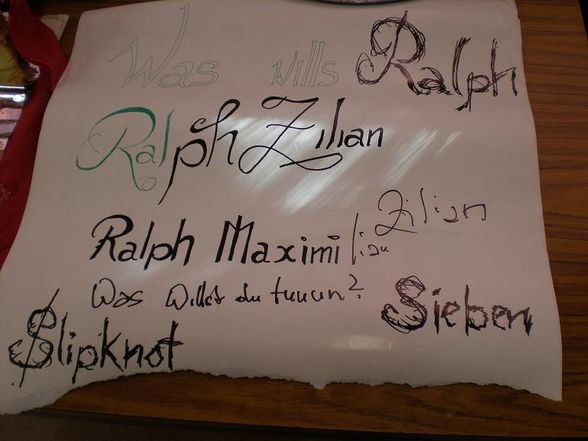 Was wills Ralph
Ralph Zilian
Zilian
Ralph Maximilian
Was willst du tuuun?
Sieben
Slipknot